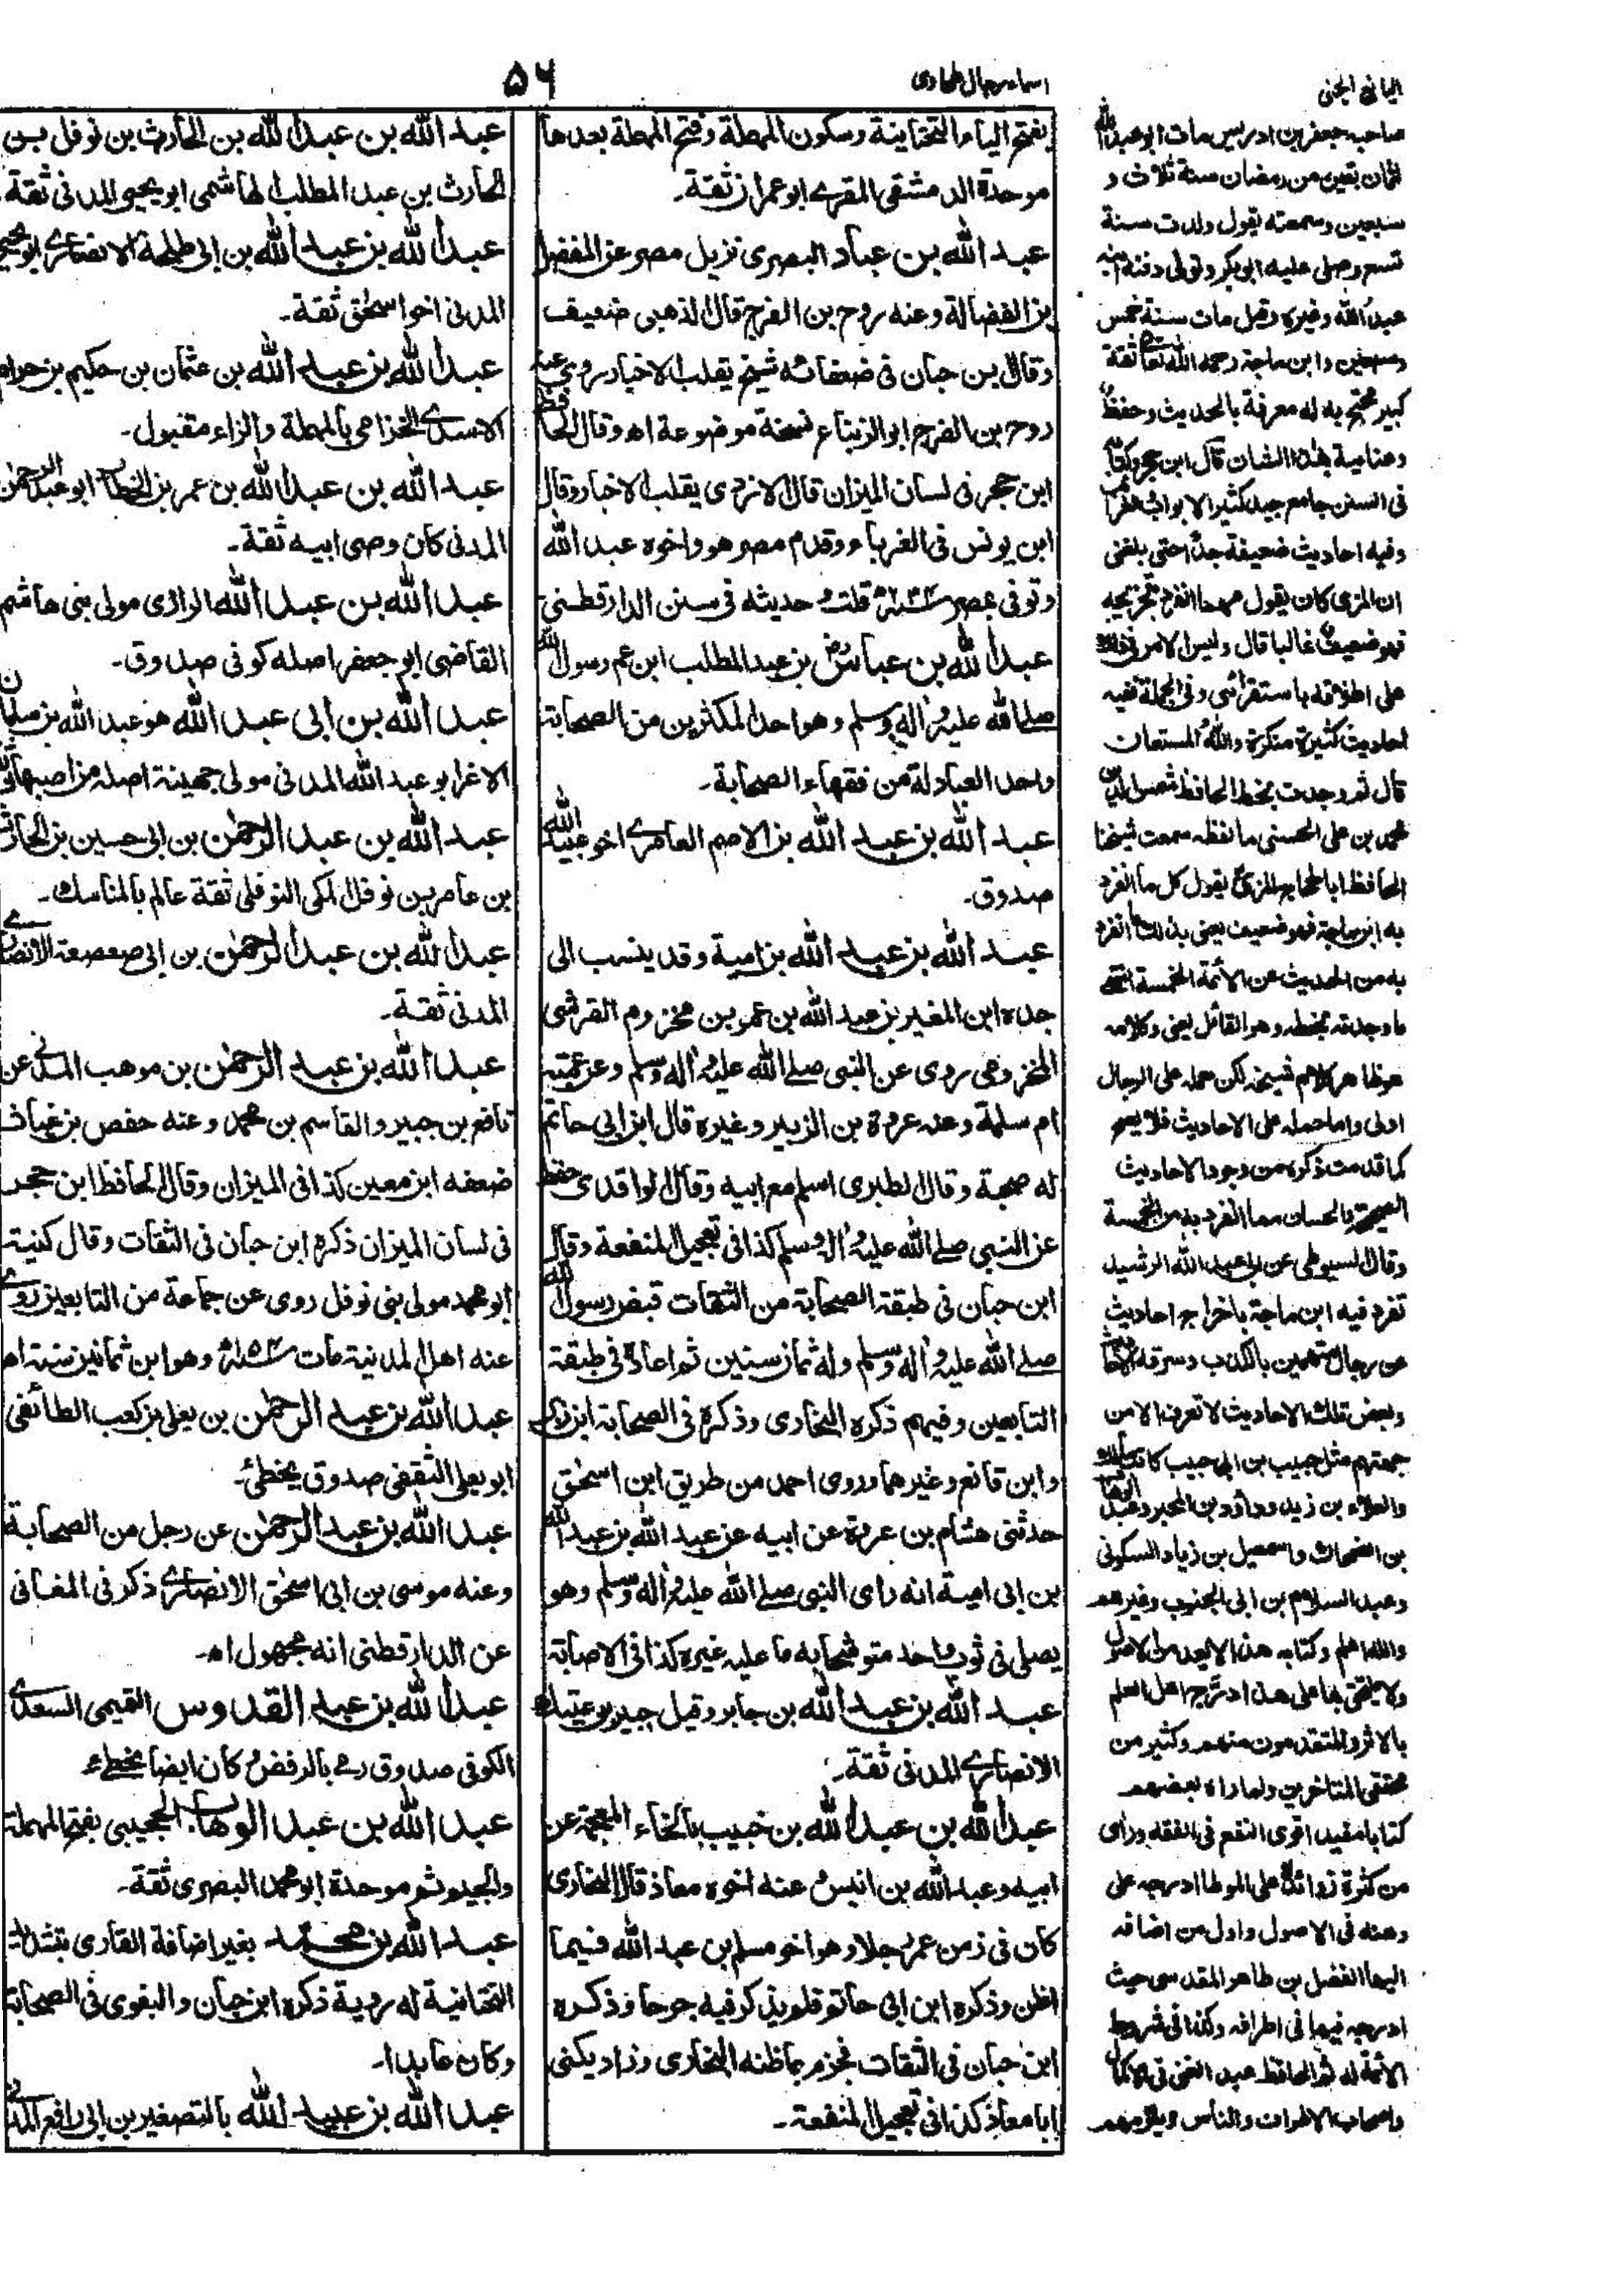 ۵٦
اسماء رجال طحاوی
اليانع الجنى
بفتح الياء التحتاينة وسكون المهملة وفتح المهملة بعدها
موحدة الدمشقى المقرے ابوعمران ثقة۔
عبد الله بن عباد البصرى نزيل مصر عن المفضل
بن الفضالة وعنه روح بن الفرج قال الذهبى ضعيف
وقال بن حبان فى ضعفائه شيخ يقلب الاخبار روى عنه
روح بن الفرج ابوالزنباع نسخة موضوعة اه وقال الحافظ
ابن حجر فى لسان الميزان قال الازدى يقلب الاخبار وقال
ابن يونس فى الغرباء وقدم مصر هو واخوه عبد الله
وتوفى بمصر قلت حديثه فى سنن الدارقطنى
عبد الله بن عباس بن عبد المطلب ابن عم رسول الله
صلے الله عليه واله وسلم وهو احد المكثرين من الصحابة
واحد العبادلة من فقهاء الصحابة۔
عبد الله بن عبد الله بن الاصم العامرے اخو عبيد الله
صدوق۔
عبد الله بن عبد الله بن امية وقد ينسب الى
جده ابن المغير بن عبد الله بن عمر بن مخزوم القرشى
المخزومى روى عن النبى صلے الله عليه واله وسلم وعن عمته
ام سلمة وعنه عروة بن الزبير وغيره قال ابن ابى حاتم
له صحبة وقال الطبرى اسلم مع ابيه وقال الواقدى حفظ
عن النبى صلے الله عليه واله وسلم كذا فى تعجيل المنفعة وقال
ابن حبان فى طبقة الصحابة من الثقات قبض رسول الله
صلے الله عليه واله وسلم وله ثمان سنين ثم اعاده فى طبقة
التابعين وفيهم ذكره البخارى وذكره فى الصحابة ابن
وابن قانع وغيرهما وروى احمد من طريق ابن اسحٰق
حدثنى هشام بن عروة عن ابيه عن عبد الله بن عبد الله
بن ابى امية انه راى النبى صلے الله عليه واله وسلم وهو
يصلى فى ثوب واحد متوشحا به ما عليه غيره كذا فى الاصابة
عبد الله بن عبد الله بن جابر وقيل جبر بن عتيك
الانصارے المدنى ثقة۔
عبد الله بن عبد الله بن خبيب بالخاء المعجمة عن
ابيه وعبد الله بن انيس عنه اخوه معاذ قال البخارى
كان فى زمن عمر رجلا وهو اخو مسلم بن عبد الله فيما
اظن وذكره ابن ابى حاتم فلم يذكر فيه جرحا وذكره
ابن حبان فى الثقات فجزم بما ظنه البخارى وزاد يكنى
ابا معاذ كذا فى تعجيل المنفعة۔
عبد الله بن عبد الله بن الحارث بن نوفل بن
الحارث بن عبد المطلب الهاشمى ابو يحيى المدنى ثقة۔
عبد الله بن عبد الله بن ابى طلحة الانصارے ابو يحيى
المدنى اخو اسحٰق ثقة۔
عبد الله بن عبد الله بن عثمان بن حكيم بن حزام
الاسدے الخزامى بالمهملة والزاء مقبول۔
عبد الله بن عبد الله بن عمر بن الخطاب ابو عبد الرحمٰن
المدنى كان وصى ابيه ثقة۔
عبد الله بن عبد الله الرازى مولى بنى هاشم
القاضى ابو جعفر اصله كوفى صدوق۔
عبد الله بن ابى عبد الله هو عبد الله بن سلمان
الاغر ابو عبد الله المدنى مولى جهينة اصله من اصبهان
عبد الله بن عبد الرحمٰن بن ابى حسين بن الحارث
بن عامر بن نوفل المكى النوفلى ثقة عالم بالمناسك۔
عبد الله بن عبد الرحمٰن بن ابى صعصعة الانصارے
المدنى ثقة۔
عبد الله بن عبد الرحمٰن بن موهب المدنى عن
نافع بن جبير والقاسم بن محمد وعنه حفص بن غياث
ضعفه ابن معين كذا فى الميزان وقال الحافظ ابن حجر
فى لسان الميزان ذكره ابن حبان فى الثقات وقال كنيته
ابو محمد مولى بنى نوفل روى عن جماعة من التابعين روى
عنه اهل المدنية مات وهو ابن ثمانين سنة اه
عبد الله بن عبد الرحمٰن بن يعلى بن كعب الطائفى
ابو يعلى الثقفى صدوق يخطئ۔
عبد الله بن عبد الرحمٰن عن رجل من الصحابة
وعنه موسى بن ابى اسحٰق الانصارے ذكر فى المغانى
عن الدارقطنى انه مجهول اه۔
عبد الله بن عبد القدوس التميمى السعدے
الكوفى صدوق رمے بالرفض كان ايضا يخطے
عبد الله بن عبد الوهاب الحجيبى بفتح المهملة
والجيم ثم موحدة ابو محمد البصرى ثقة۔
عبد الله بن محمد بغير اضافة القارى بتشديد
التحتانية له روية ذكره ابن حبان والبغوى فى الصحابة
وكان عابدا۔
عبد الله بن عبيد الله بالتصغير بن ابى رافع المدنى
صاحبه جعفر بن ادريس مات ابو عبد الله
لثمان بقين من رمضان سنة ثلاث و
سبعين وسمعته يقول ولدت سنة
تسع وصلى عليه ابو بكر وتولى دفنه ابنه
عبد الله وغيره وقيل مات سنة خمس
وسبعين وابن ماجة رحمه الله تعالى ثقة
كبير محتج به له معرفة بالحديث وحفظ
وعناية بهذا الشان قال ابن حجر وكتابه
فى السنن جامع جيد كثير الابواب والغرائب
وفيه احاديث ضعيفة جدا حتى بلغنى
ان المزى كان يقول مهما انفرد بتخريجه
فهو ضعيف غالبا قال وليس الامر فى ذلك
على اطلاقه باستقرائى وفى الجملة ففيه
احاديث كثيرة منكرة والله المستعان
قال ثم وجدت بخط الحافظ شمس الدين
محمد بن على الحسينى ما لفظه سمعت شيخنا
الحافظ ابا الحجاج المزى يقول كل ما انفرد
به ابن ماجة فهو ضعيف يعنى بذلك ما انفرد
به من الحديث عن الائمة الخمسة انتهى
ما وجدته بخطه وهو القائل يعنى وكلامه
هو ظاهر كلام شيخه لكن حمله على الرجال
اولى واما حمله على الاحاديث فلا يصح
كما قدمت ذكره من وجود الاحاديث
الصحيحة والحسان مما انفرد به من الخمسة
وقال السيوطى عن ابى عبد الله الرشيد
تفرد فيه ابن ماجة باخراج احاديث
عن رجال متهمين بالكذب وسرقة
وبعض تلك الاحاديث لا تعرف الا من
جهتهم مثل حبيب بن ابى حبيب كاتب مالك
والعلاء بن زيد وداؤد بن المحبر وعبد الوهاب
بن الضحاك واسمعيل بن زياد السكونى
وعبد السلام بن ابى الجنوب وغيرهم
والله اعلم وكتابه هذا لا يعد من الاصول
اهل العلم
بالاثر والمتقدمون منهم وكثير من
محققى المتاخرين ولما راه بعضهم
كتابا مفيدا قوى النفع فى الفقه وراى
من كثرة زوائده على الموطا ادرجه على
وهنه فى الاصول واول من اضافه
اليها الفضل بن طاهر المقدسى حيث
ادرجه فيها فى اطرافه وكذا فى شروط
الائمة له ثم الحافظ عبد الغنى فى الاكمال
واصحاب الاطراف والناس